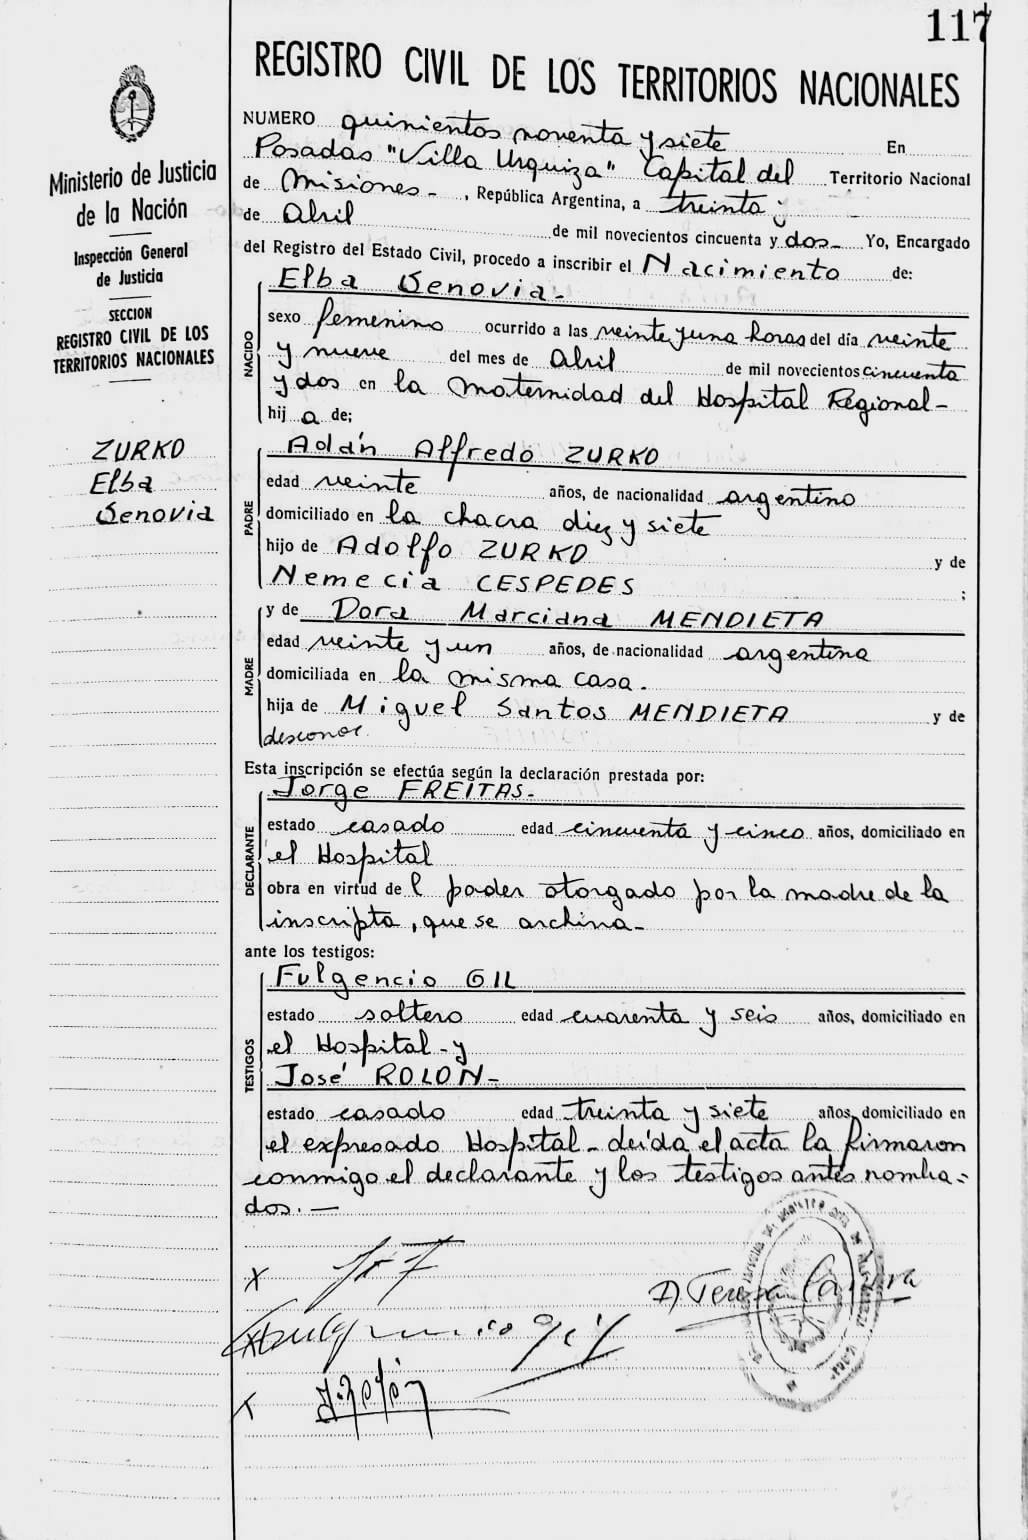 117
REGISTRO CIVIL DE LOS TERRITORIOS NACIONALES
Ministerio de Justicia
de la Nación
Inspección General
de Justicia
SECCION
REGISTRO CIVIL DE LOS
TERRITORIOS NACIONALES
ZURKO
Elba
Senovia
NUMERO quinientos noventa y siete En
Posadas "Villa Urquiza" Capital del Territorio Nacional
de Misiones - , República Argentina, a treinta y
de Abril de mil novecientos cincuenta y dos - Yo, Encargado
del Registro del Estado Civil, procedo a inscribir el Nacimiento de:
NACIDO
Elba Senovia -
sexo femenino ocurrido a las veinte y una horas del día veinte
y nueve del mes de Abril de mil novecientos cincuenta
y dos en la Maternidad del Hospital Regional -
hij a de;
PADRE
Adán Alfredo ZURKO
edad veinte años, de nacionalidad argentino
domiciliado en la chacra diez y siete
hijo de Adolfo ZURKO y de
Nemecia CESPEDES ;
MADRE
y de Dora Marciana MENDIETA
edad veinte y un años, de nacionalidad argentina
domiciliada en la misma casa.
hija de Miguel Santos MENDIETA y de
desconoc
Esta inscripción se efectúa según la declaración prestada por:
DECLARANTE
Jorge FREITAS -
estado casado edad cincuenta y cinco años, domiciliado en
el Hospital
obra en virtud de l poder otorgado por la madre de la
inscripta, que se archiva -
ante los testigos:
TESTIGOS
Fulgencio GIL
estado soltero edad cuarenta y seis años, domiciliado en
el Hospital - y
José ROLON -
estado casado edad treinta y siete años, domiciliado en
el expresado Hospital - leída el acta la firmaron
conmigo el declarante y los testigos antes nombra =
dos. —
X
Teresa
Fulgencio Gil
X
J. Rolón